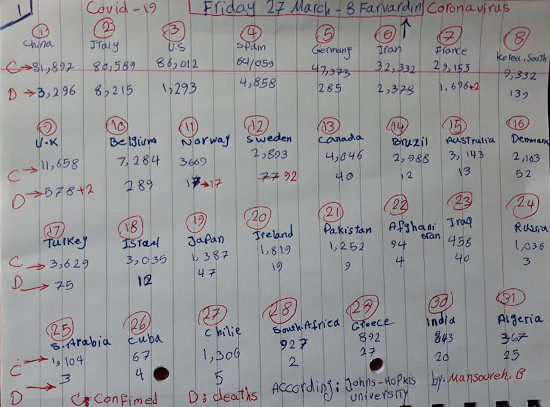 1 Covid-19 Friday 27 March - 8 Farvardin Coronavirus
1 2 3 4 5 6 7 8
China Italy U.S Spain Germany Iran France Korea, South
C → 81,897 80,589 86,012 64,059 47,373 32,332 29,155 9,332
D → 3,296 8,215 1,293 4,858 285 2,378 1,696+2 139
9 10 11 12 13 14 15 16
U.K Belgium Norway Sweden Canada Brazil Australia Denmark
C → 11,658 7,284 3669 2,893 4,046 2,988 3,143 2,163
D → 578+2 289 → 17 77 92 40 12 13 52
17 18 19 20 21 22 23 24
Turkey Israel Japan Ireland Pakistan Afghanistan Iraq Russia
C → 3,629 3,035 1,387 1,819 1,252 94 458 1,036
D → 75 12 47 19 9 4 40 3
25 26 27 28 29 30 31
S.Arabia Cuba Chilie South Africa Greece India Algeria
C → 1,104 67 1,306 927 892 863 367
D → 3 4 5 2 27 20 25
C: Confimed D: deaths According: Johns-Hopkis university by: Mansoureh. B